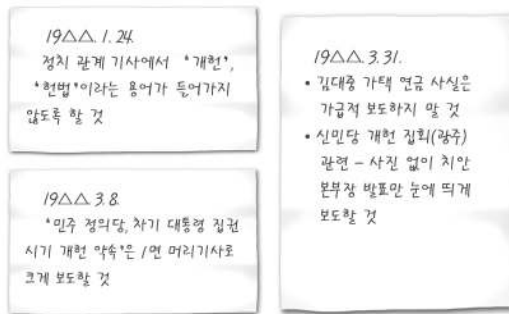 19△△. 1. 24.
정치 관계 기사에서 '개헌',
'헌법'이라는 용어가 들어가지
않도록 할 것
19△△. 3. 8.
'민주 정의당, 차기 대통령 집권
시기 개헌 약속'은 1면 머리기사로
크게 보도할 것
19△△. 3. 31.
• 김대중 가택 연금 사실은
가급적 보도하지 말 것
• 신민당 개헌 집회(광주)
관련 - 사진 없이 치안
본부장 발표만 눈에 띄게
보도할 것